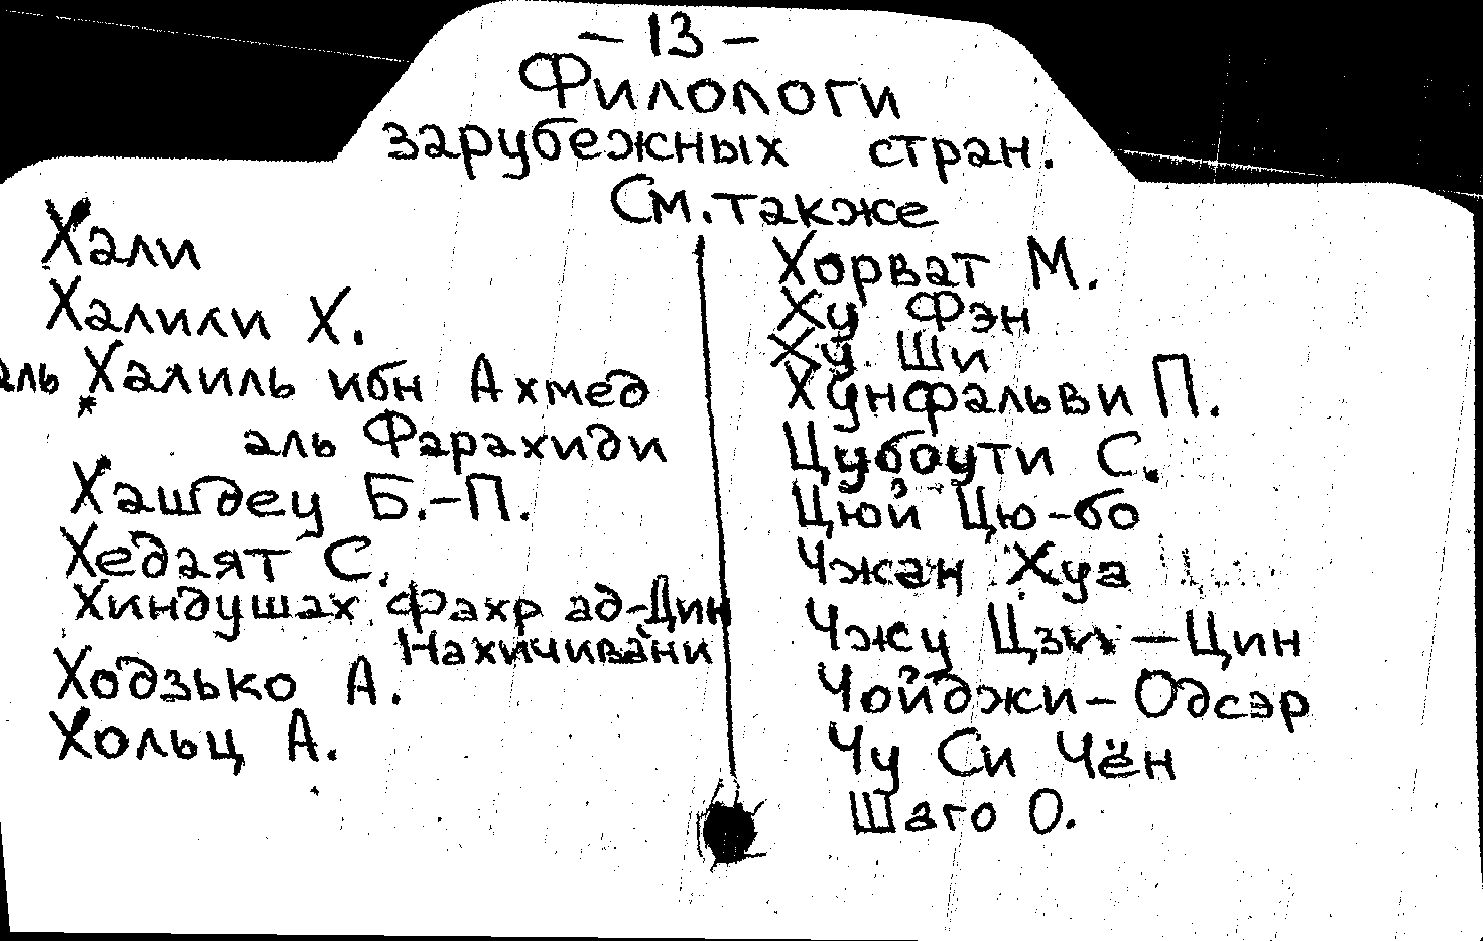 – 13 –
Филологи
зарубежных стран.
См. также
Хали
Халили Х.
аль Халиль ибн Ахмед
аль Фарахиди
Хашдеу Б.-П.
Хедаят С.
Хиндушах Фахр ад-Дин
Нахичивани
Ходзько А.
Хольц А.
Хорват М.
Ху Фэн
Ху Ши
Хунфальви П.
Цубоути С.
Цюй Цю-бо
Чжан Хуа
Чжу Цзы-Цин
Чойджи-Одсэр
Чу Си Чён
Шаго О.